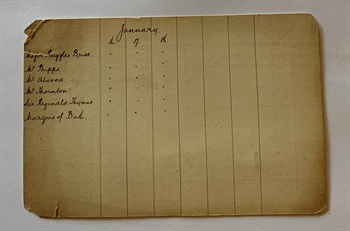 January
16 17 18
Major Ruggles Brise. " " "
Mr Phipps. " " "
Mr Atwood. " " "
Mr Thornton. " " "
Sir Reginald Thynne. " " "
Marquis of Bath. "